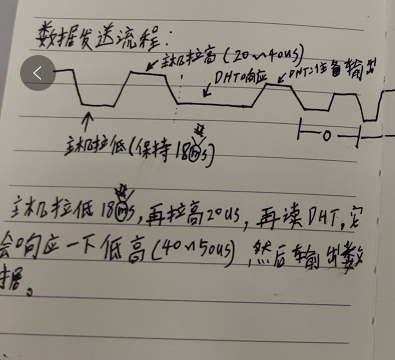 数据发送流程：
主机拉高(20~40us)
DHT响应
DHT准备输出
主机拉低(保持18ms)
0
主机拉低18ms,再拉高20us,再读DHT,它
会响应一下低高(40~50us),然后输出数
据。